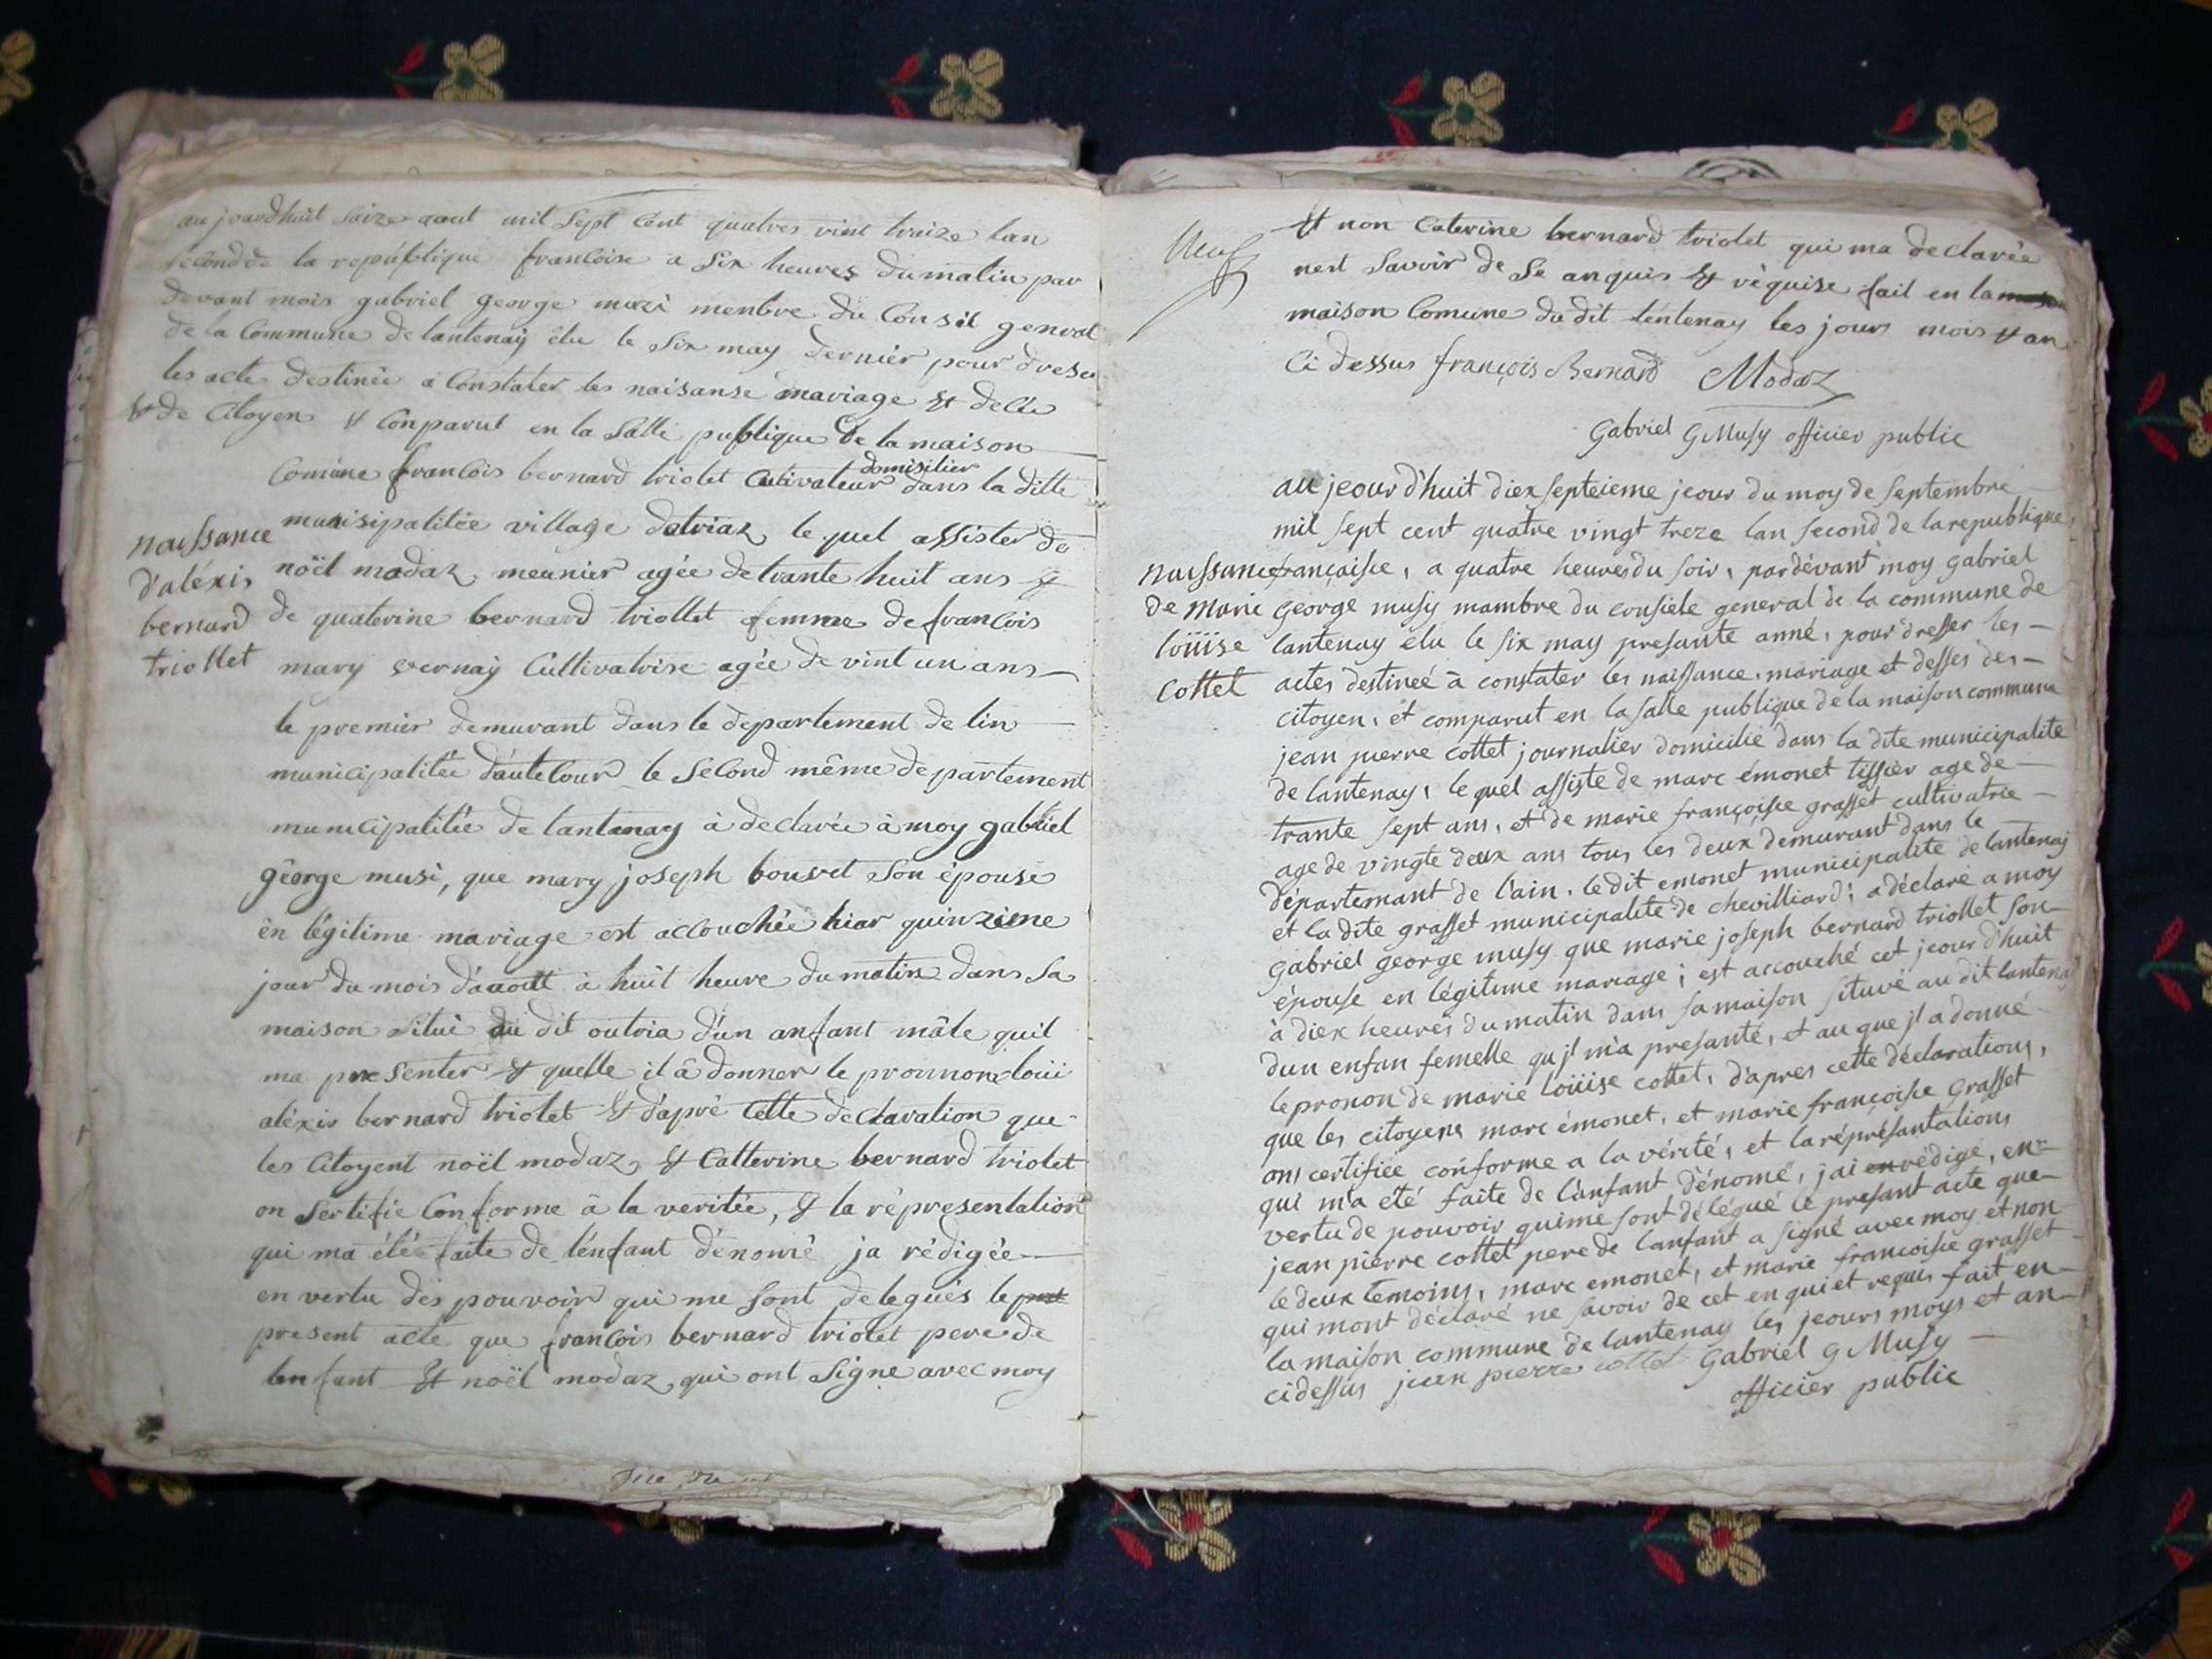 aujourdhuit saize aout mil sept Cent quatres vint traize lan
second de la république francoise a six heures du matin par
devant mois gabriel george musi menbre du Consil genral
de la Commune de lantenay élu le six may dernier pour dreser
les acte destinée a Constater les naisanse mariage & decée
& de Citoyen & Conparut en la Salle publique de la maison
Comune francois bernard triolet Cutivateur domisilier dans la ditte
munisipalitée village dotriaz le quel assister de
naissance d'aléxis bernard triollet
nöel modaz meunier agée de trante huit ans &
de quaterine bernard triollet femme de francois
mary vernay Cultivatrise agée de vint un ans
le premier demurant dans le departement de lin
municipalitée dautecour le second même departement
municipalitée de lantenay à declarée à moy gabriel
george musi, que mary joseph bouvet son épouse
en légitime mariage est accouchée hiar quinzieme
jour du mois d'aaoutt à huit heure du matin dans sa
maison situé au dit outria d'un anfant mâle quil
ma presenter & quelle il â donner le prounon loüi
aléxis bernard triolet & d'apré cette declaration que
les Citoyent noël modaz & Catterine bernard triolet
on sertifie Conforme â la veritée, & la répresentation
qui ma été faite de lénfant dénomé ja rédigée
en vertu des pouvoir qui me sont delegués le
present acte que francois bernard triolet pere de
lenfant & noël modaz qui ont signe avec moy
Neuf
& non Caterine bernard triolet qui ma declarée
nest savoir de se anquis & réquise fait en la
maison Comune du dit lentenay les jours mois & an
Ci dessus françois Bernard Modaz
Gabriel G Musy officier public
aujeourd'huit diex septeieme jeour du moy de septembre
mil sept cent quatre vingt treze lan second de la republique
naissance de marie loüise Cottet
françaisse, a quatre heures du soir, pardévant moy Gabriel
George musy mambre du consiele general de la commune de
lantenay élu le six may presante anné, pour dresser les
actes destineé à constater les naissance, mariage et desses des
citoyen, ét comparut en la salle publique de la maison commune
jean pierre cottet journalier domicilié dans la dite municipalite
de lantenay, le quel assiste de marc émonet tissier age de
trante sept ans, et de marie françoise grasset cultivatrie
age de vingte deux ans tous les deux demurant dans le
départemant de l'ain, le dit emonet municipalite de lantenay
et la dite grasset municipalite de chevilliard; a déclaré a moy
Gabriel george musy que marie joseph bernard triollet son
épouse en légitime mariage; est accouché cet jeour d'huit
à diex heures du matin dans sa maison situvé au dit lantenay
dun enfan femelle qu'jl m'a presanté, et au que jl a donné
le pronon de marie loüise cottet, d'apres cette déclarations,
que les citoyens marc émonet, et marie françoise Grasset
ons certifiée conforme a la vérité, et la réprésantations
qui m'a été faite de l'anfant dénomé, jai en rédige, en
vertu de pouvoir qui me sont délégué le presant acte que
jean pierre cottet pere de lanfant a signé avec moy et non
le deux temoins, marc emonet, et marie francoise grasset
qui mont déclaré ne savoir de cet en qui et requis fait en
la maison commune de lantenay les jeours moys et an
cidessus jean pierre cottet Gabriel G Musy
officier public